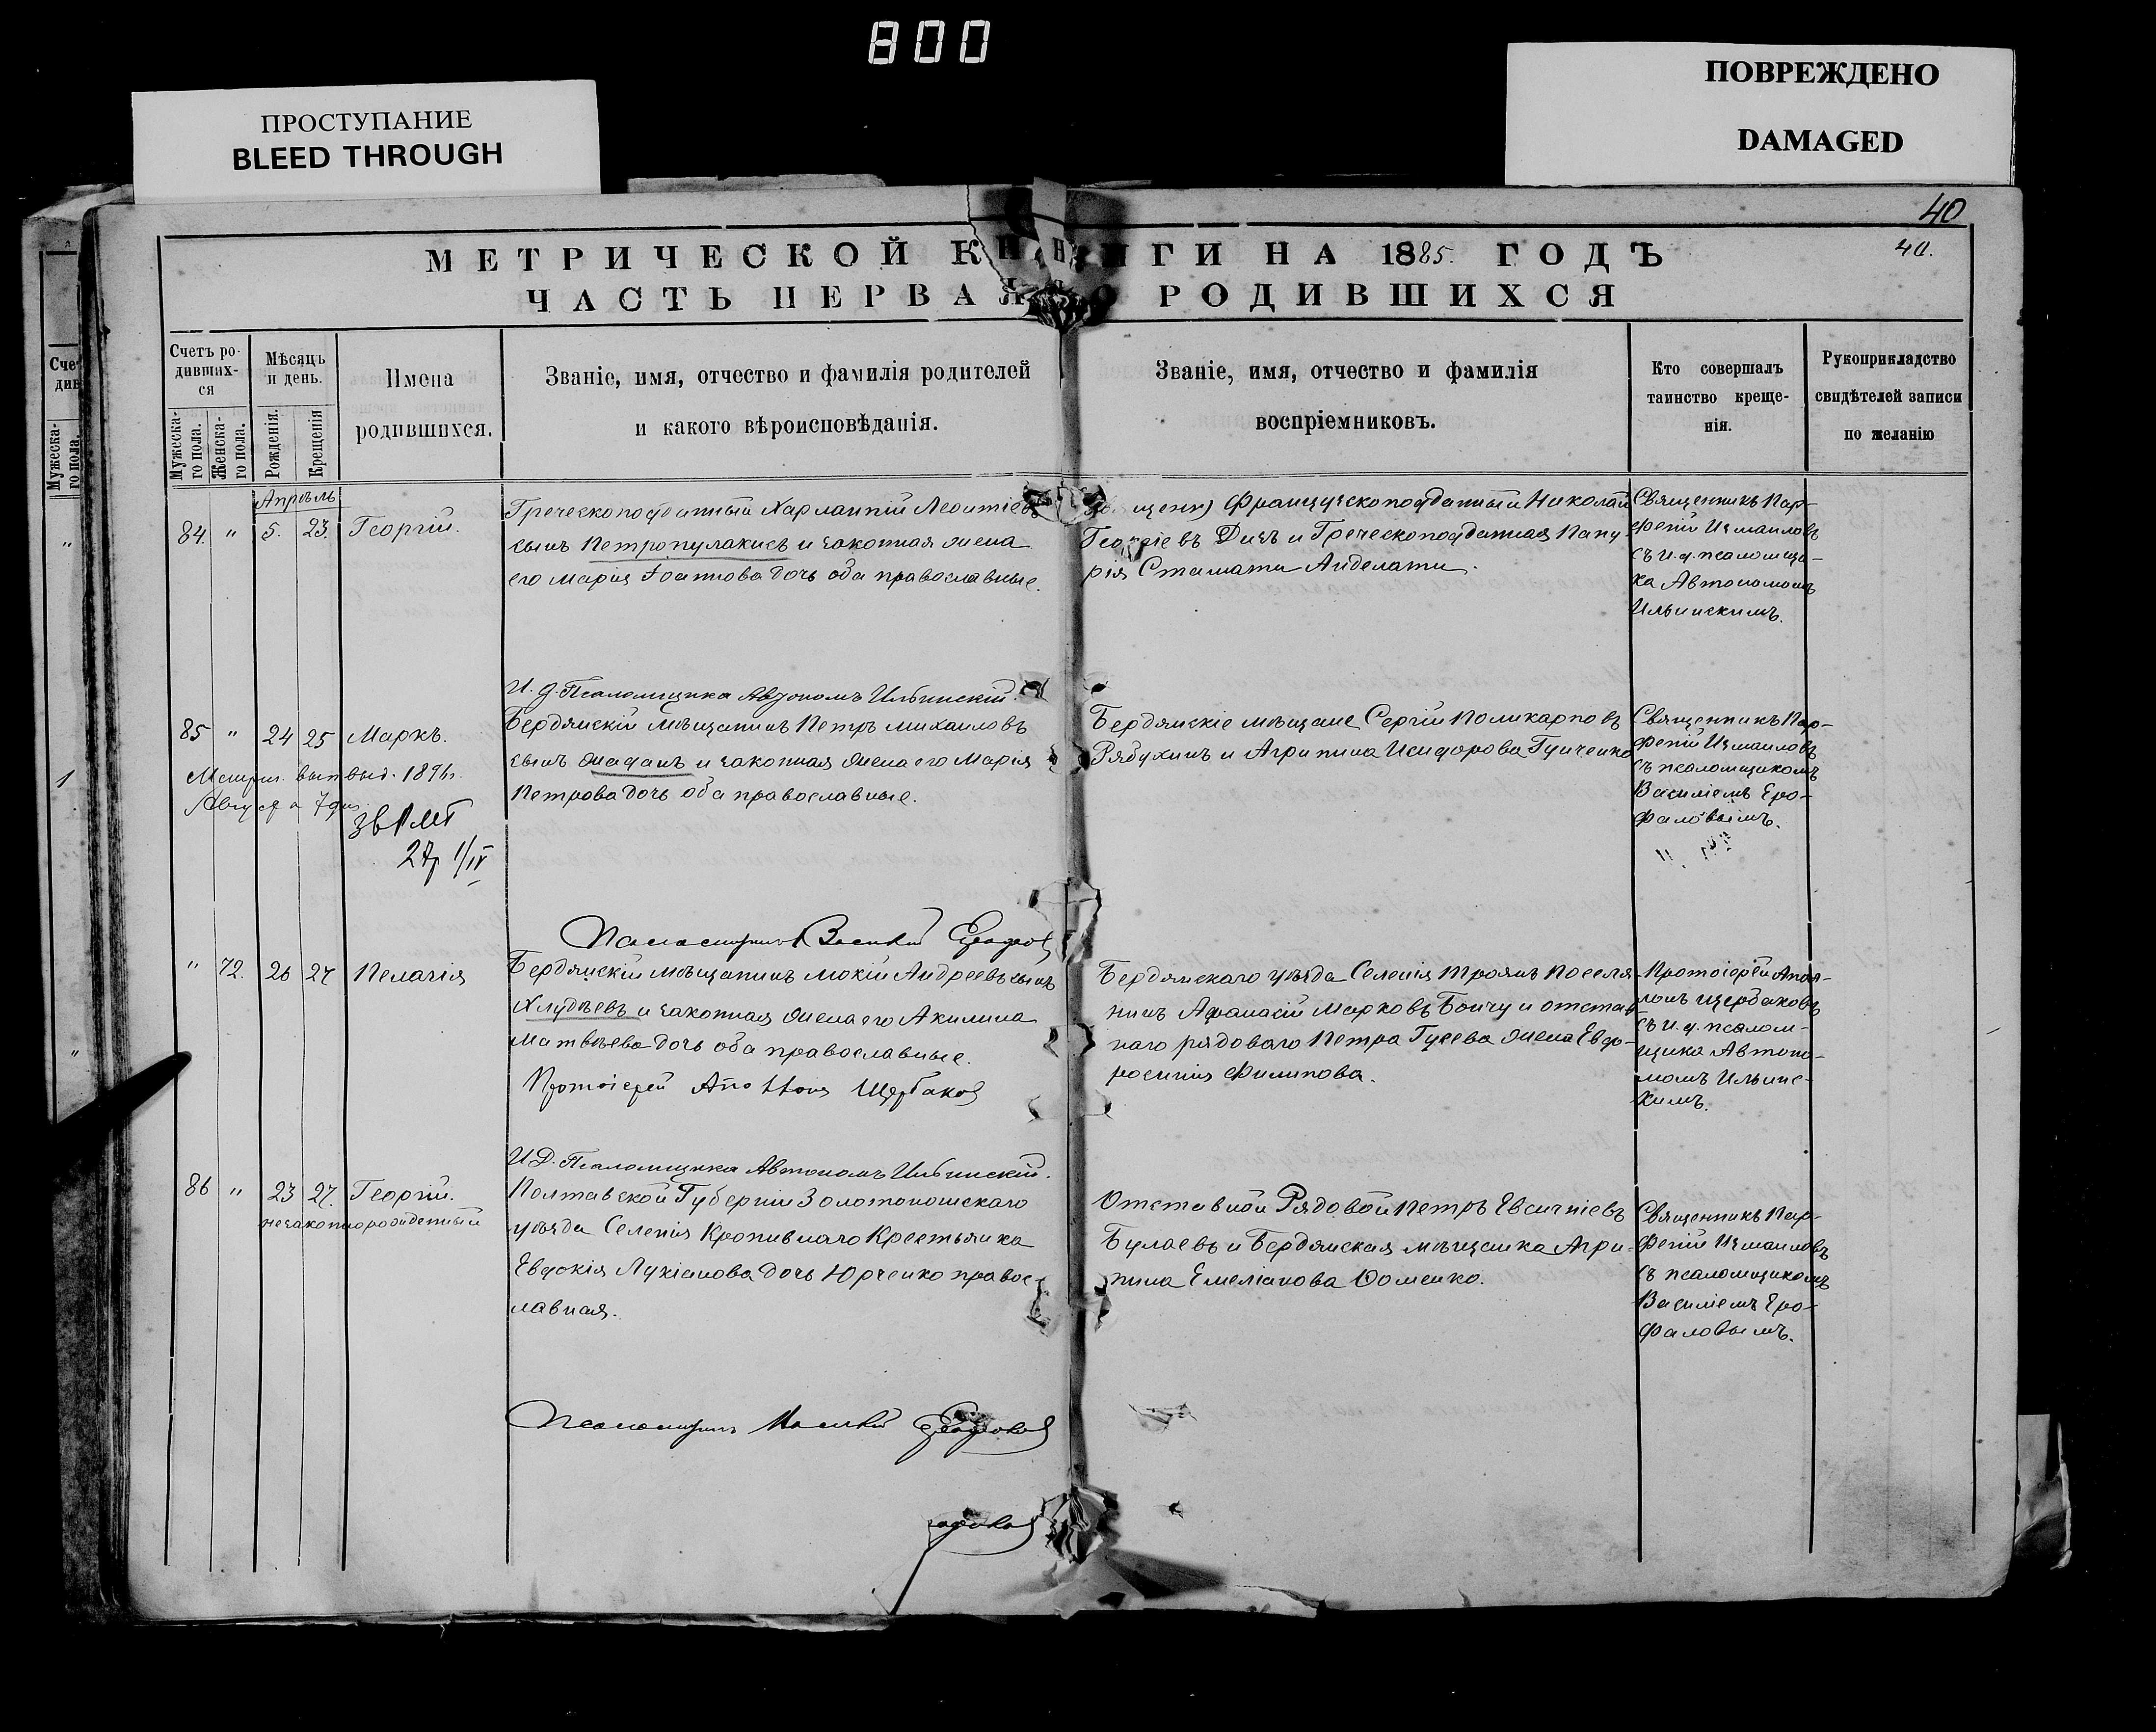 800
ПРОСТУПАНИЕ
BLEED THROUGH
ПОВРЕЖДЕНО
DAMAGED
40
40.
МЕТРИЧЕСКОЙ КНИГИ НА 1885. ГОДЪ
ЧАСТЬ ПЕРВАЯ О РОДИВШИХСЯ
Счетъ ро-
дивших-
ся
Мужеска-
го пола.
Женска-
го пола.
Мѣсяцъ
и день.
Рожденія.
Крещенія
Имена
родившихся.
Званіе, имя, отчество и фамилія родителей
и какого вѣроисповѣданія.
Званіе, имя, отчество и фамилія
воспріемниковъ.
Кто совершалъ
таинство креще-
нія.
Рукоприкладство
свидѣтелей записи
по желанію
Апрѣль
84. " 5. 23. Георгій.
Греческоподданный Харлампій Леонтіевъ
сынъ Петропулакисъ и законная жена
его Марія Іоаннова дочь оба православные.
Французскоподданный Николай
Георгіевъ Дизъ и Греческоподданная
Стамати
Священникъ Пар-
феній Измаиловъ
съ и. д. псаломщи-
ка Автономомъ
Ильинскимъ.
И. д. Псаломщика Автономъ Ильинскій.
85 " 24 25 Маркъ.
Метрич. вып. выд. 1896 г.
Августа 7 дня
27 1/IV
Бердянскій мѣщанинъ Петръ Михаиловъ
сынъ Жаданъ и законная жена его Марія
Петрова дочь оба православные.
Бердянскіе мѣщане Сергій Поликарповъ
Рябухинъ и Агрипина Исидорова Гунченко
Священникъ Пар-
феній Измаиловъ
съ псаломщикомъ
Василіемъ Еро-
фаловымъ.
Псаломщикъ Василій
" 72. 26 27 Пелагія
Бердянскій мѣщанинъ Мокій Андреевъ сынъ
Хлудѣевъ и законная жена его Акилина
Матвѣева дочь оба православные.
Протоіерей Аполлонъ Щербаковъ
Бердянскаго уѣзда Селенія Троянъ поселя-
нинъ Афанасій Марковъ Бойчу и отстав-
наго рядоваго Петра Гусева жена Евфо-
росинія Филипова.
Протоіерей Апол-
лонъ Щербаковъ
съ и. д. псалом-
щика Автоно-
момъ Ильинс-
кимъ.
И.Д. Псаломщика Автономъ Ильинскій.
86 " 23 27. Георгій.
незаконнорожденный
Полтавской Губерніи Золотоношскаго
уѣзда Селенія Кропивнаго Крестьянка
Евдокія Лукіанова дочь Юрченко правос-
лавная.
Отставной Рядовой Петръ Евсигніевъ
Булаевъ и Бердянская мѣщанка Агри-
пина Емеліанова Фоменко.
Священникъ Пар-
феній Измаиловъ
съ псаломщикомъ
Василіемъ Еро-
фаловымъ.
Псаломщикъ Василій